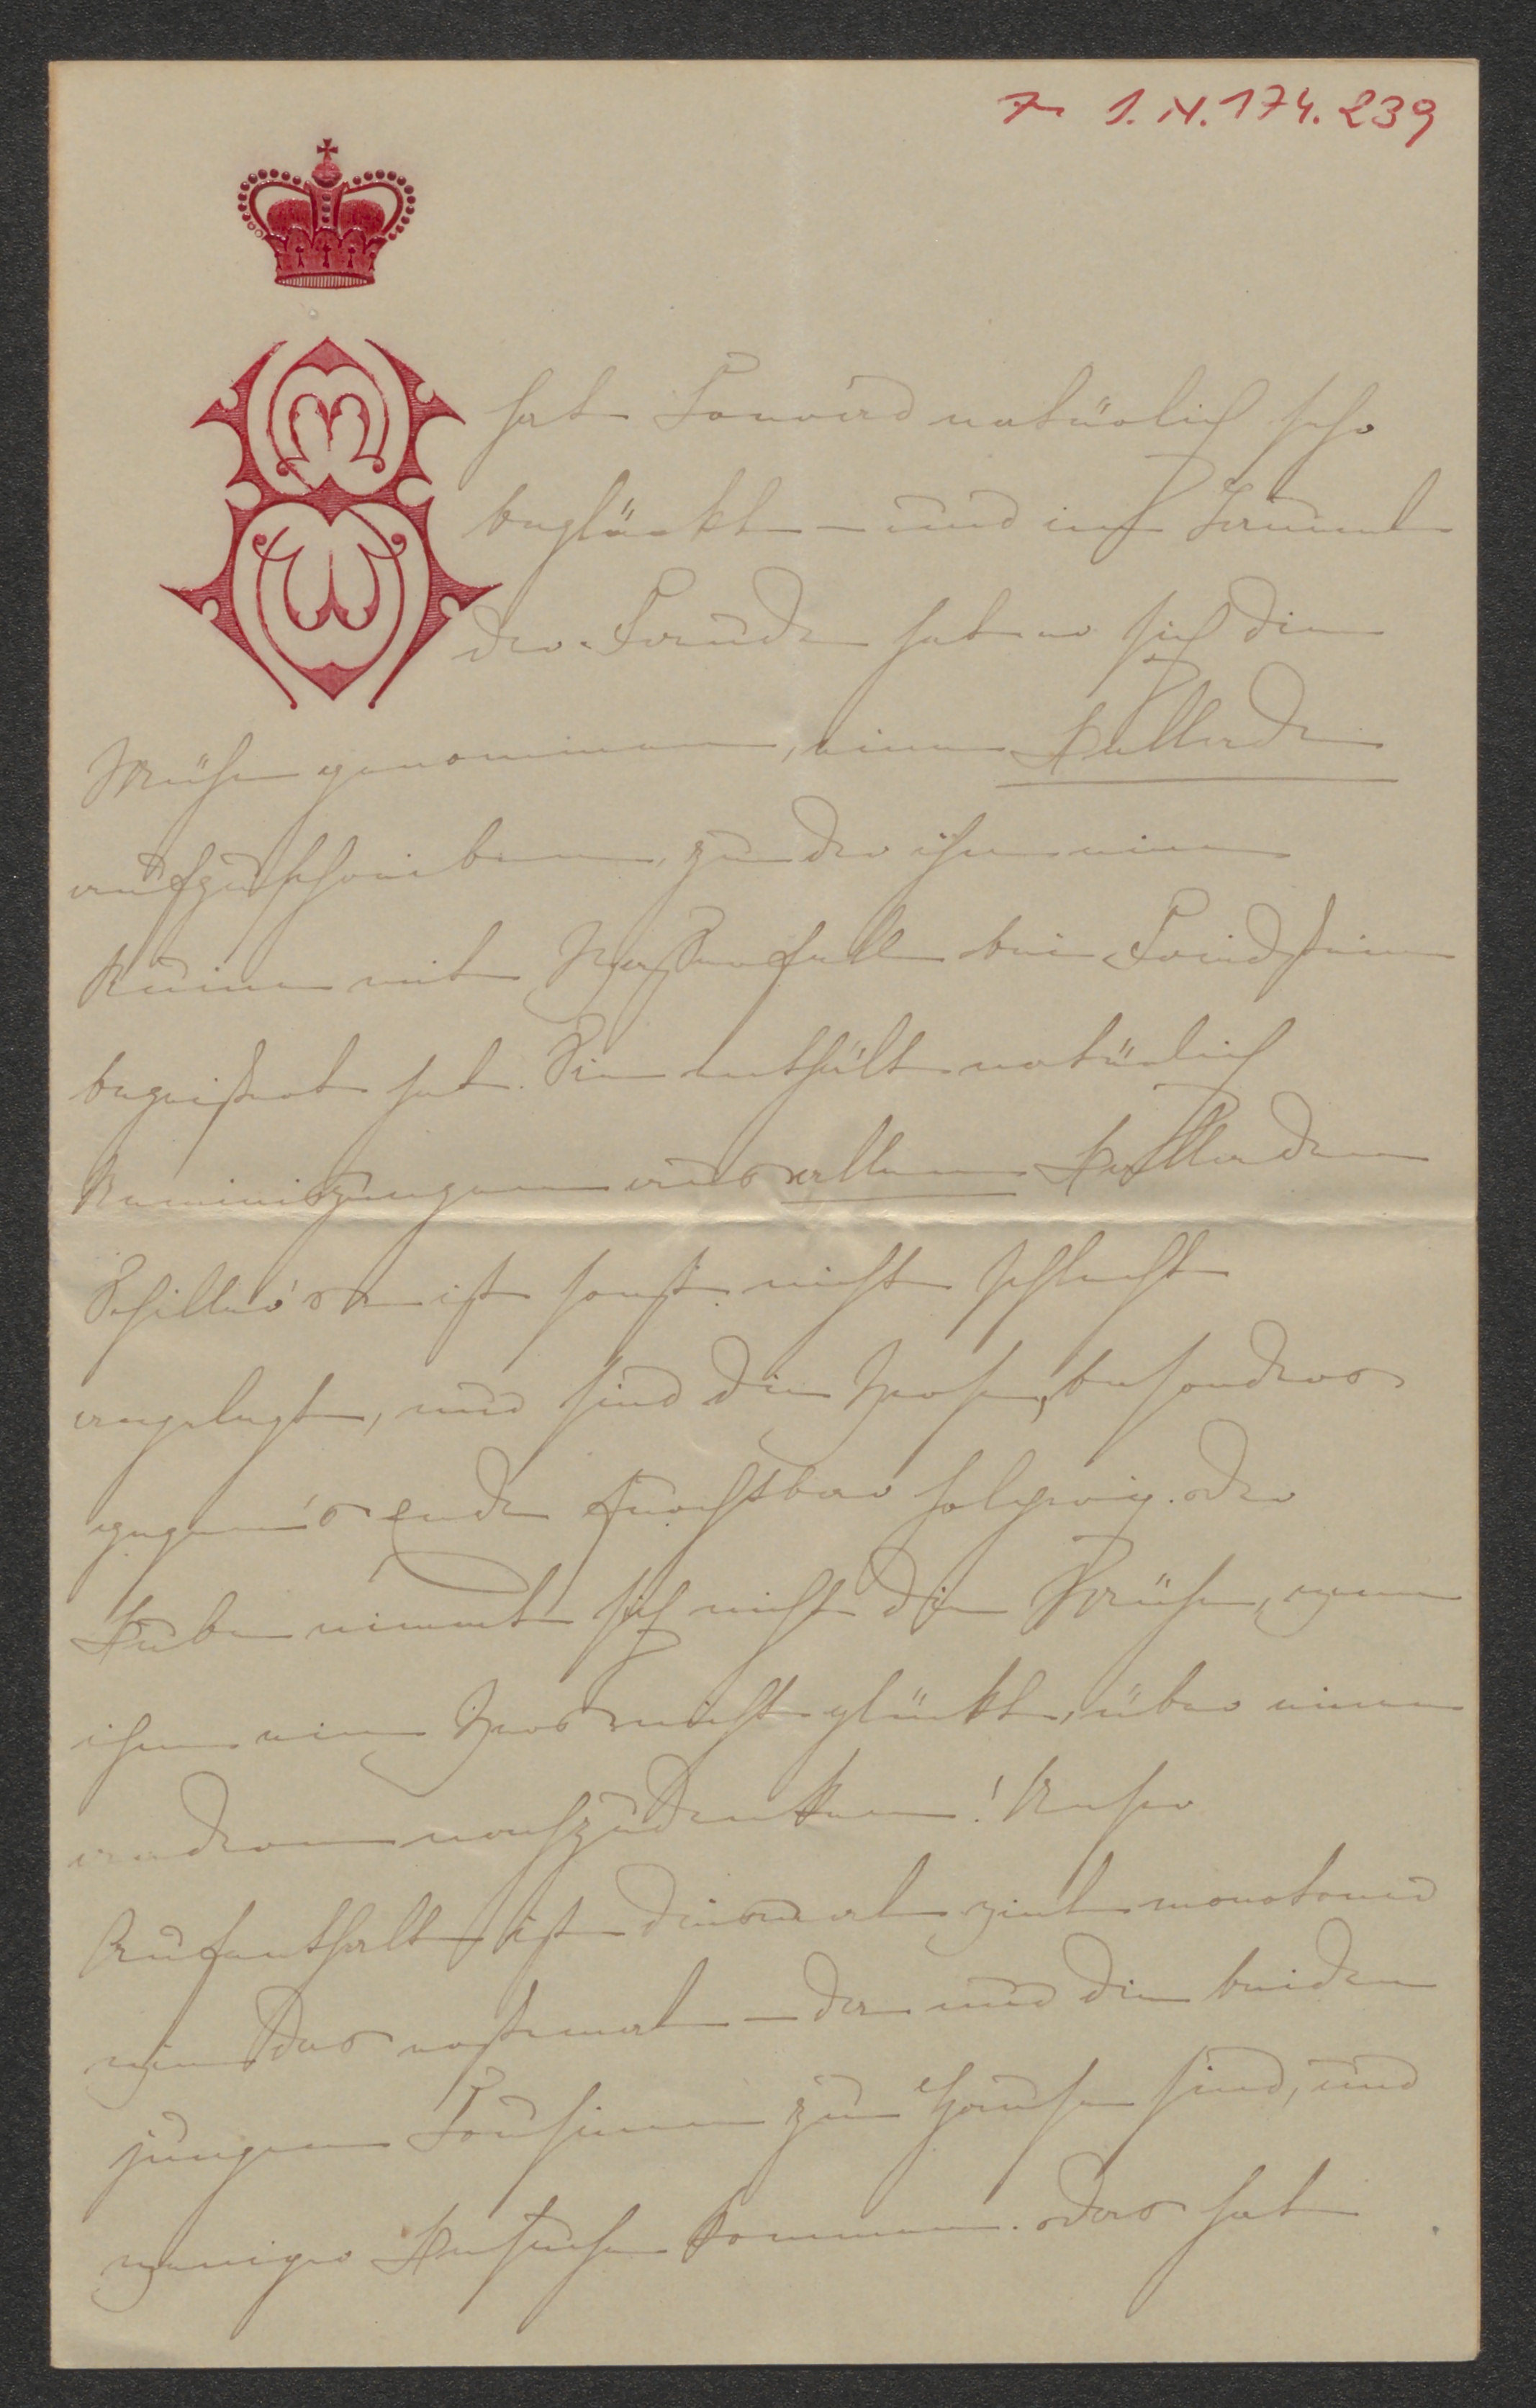 I.N. 174.239
hat Konrad natürlich sehr
beglückt – und im Taumel
der Freude hat er sich die
Mühe genommen, eine Ballade
aufzuschreiben, zu der ihn eine
Ruine mit Wasserfall bei Friedstein
begeistert hat. Sie enthält natürlich
Reminiszenzen aus allen Balladen
Schiller's, ist sonst nicht schlecht
angelegt, nur sind die Verse, besonders
gegen's Ende furchtbar holprig. Der
Bube nimmt sich nicht die Mühe, wenn
ihm ein Vers nicht glückt, über einen
andern nachzudenken! Unser
Aufenthalt ist diesmal viel monotoner
wie das erstemal – da nur die beiden
jungen Cousinen zu Hause sind, und
weniger Besuche kommen. Das hat